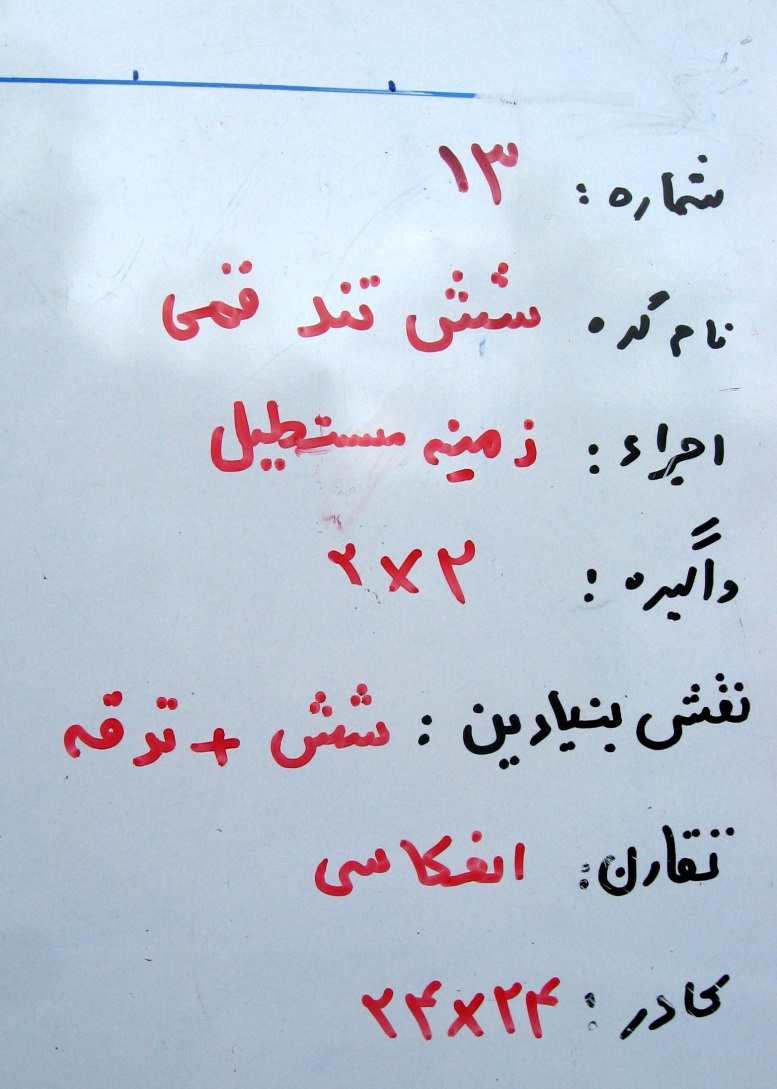 شماره : ۱۳
نام گره شش تند قمی
اجراء : زمینه مستطیل
واگیره : ۲×۲
نقش بنیادین : شش + ترقه
تقارن : انعکاسی
کادر : ۲۴×۲۴